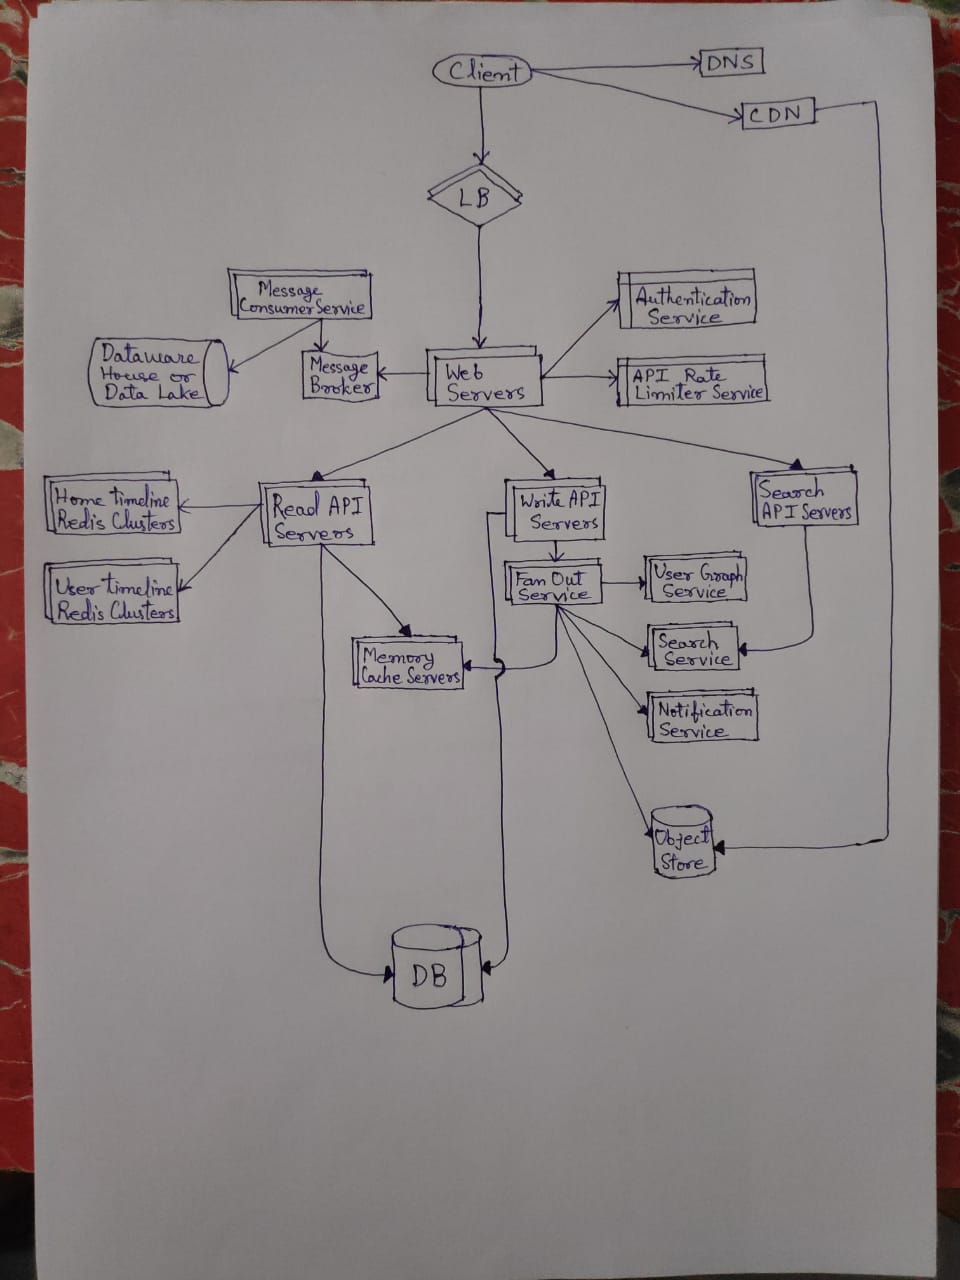 Client
DNS
CDN
LB
Message
Consumer Service
Authentication
Service
Dataware
House or
Data Lake
Message
Broker
Web
Servers
API Rate
Limiter Service
Home timeline
Redis Clusters
Read API
Servers
Write API
Servers
Search
API Servers
User timeline
Redis Clusters
Fan Out
Service
User Graph
Service
Memory
Cache Servers
Search
Service
Notification
Service
Object
Store
DB